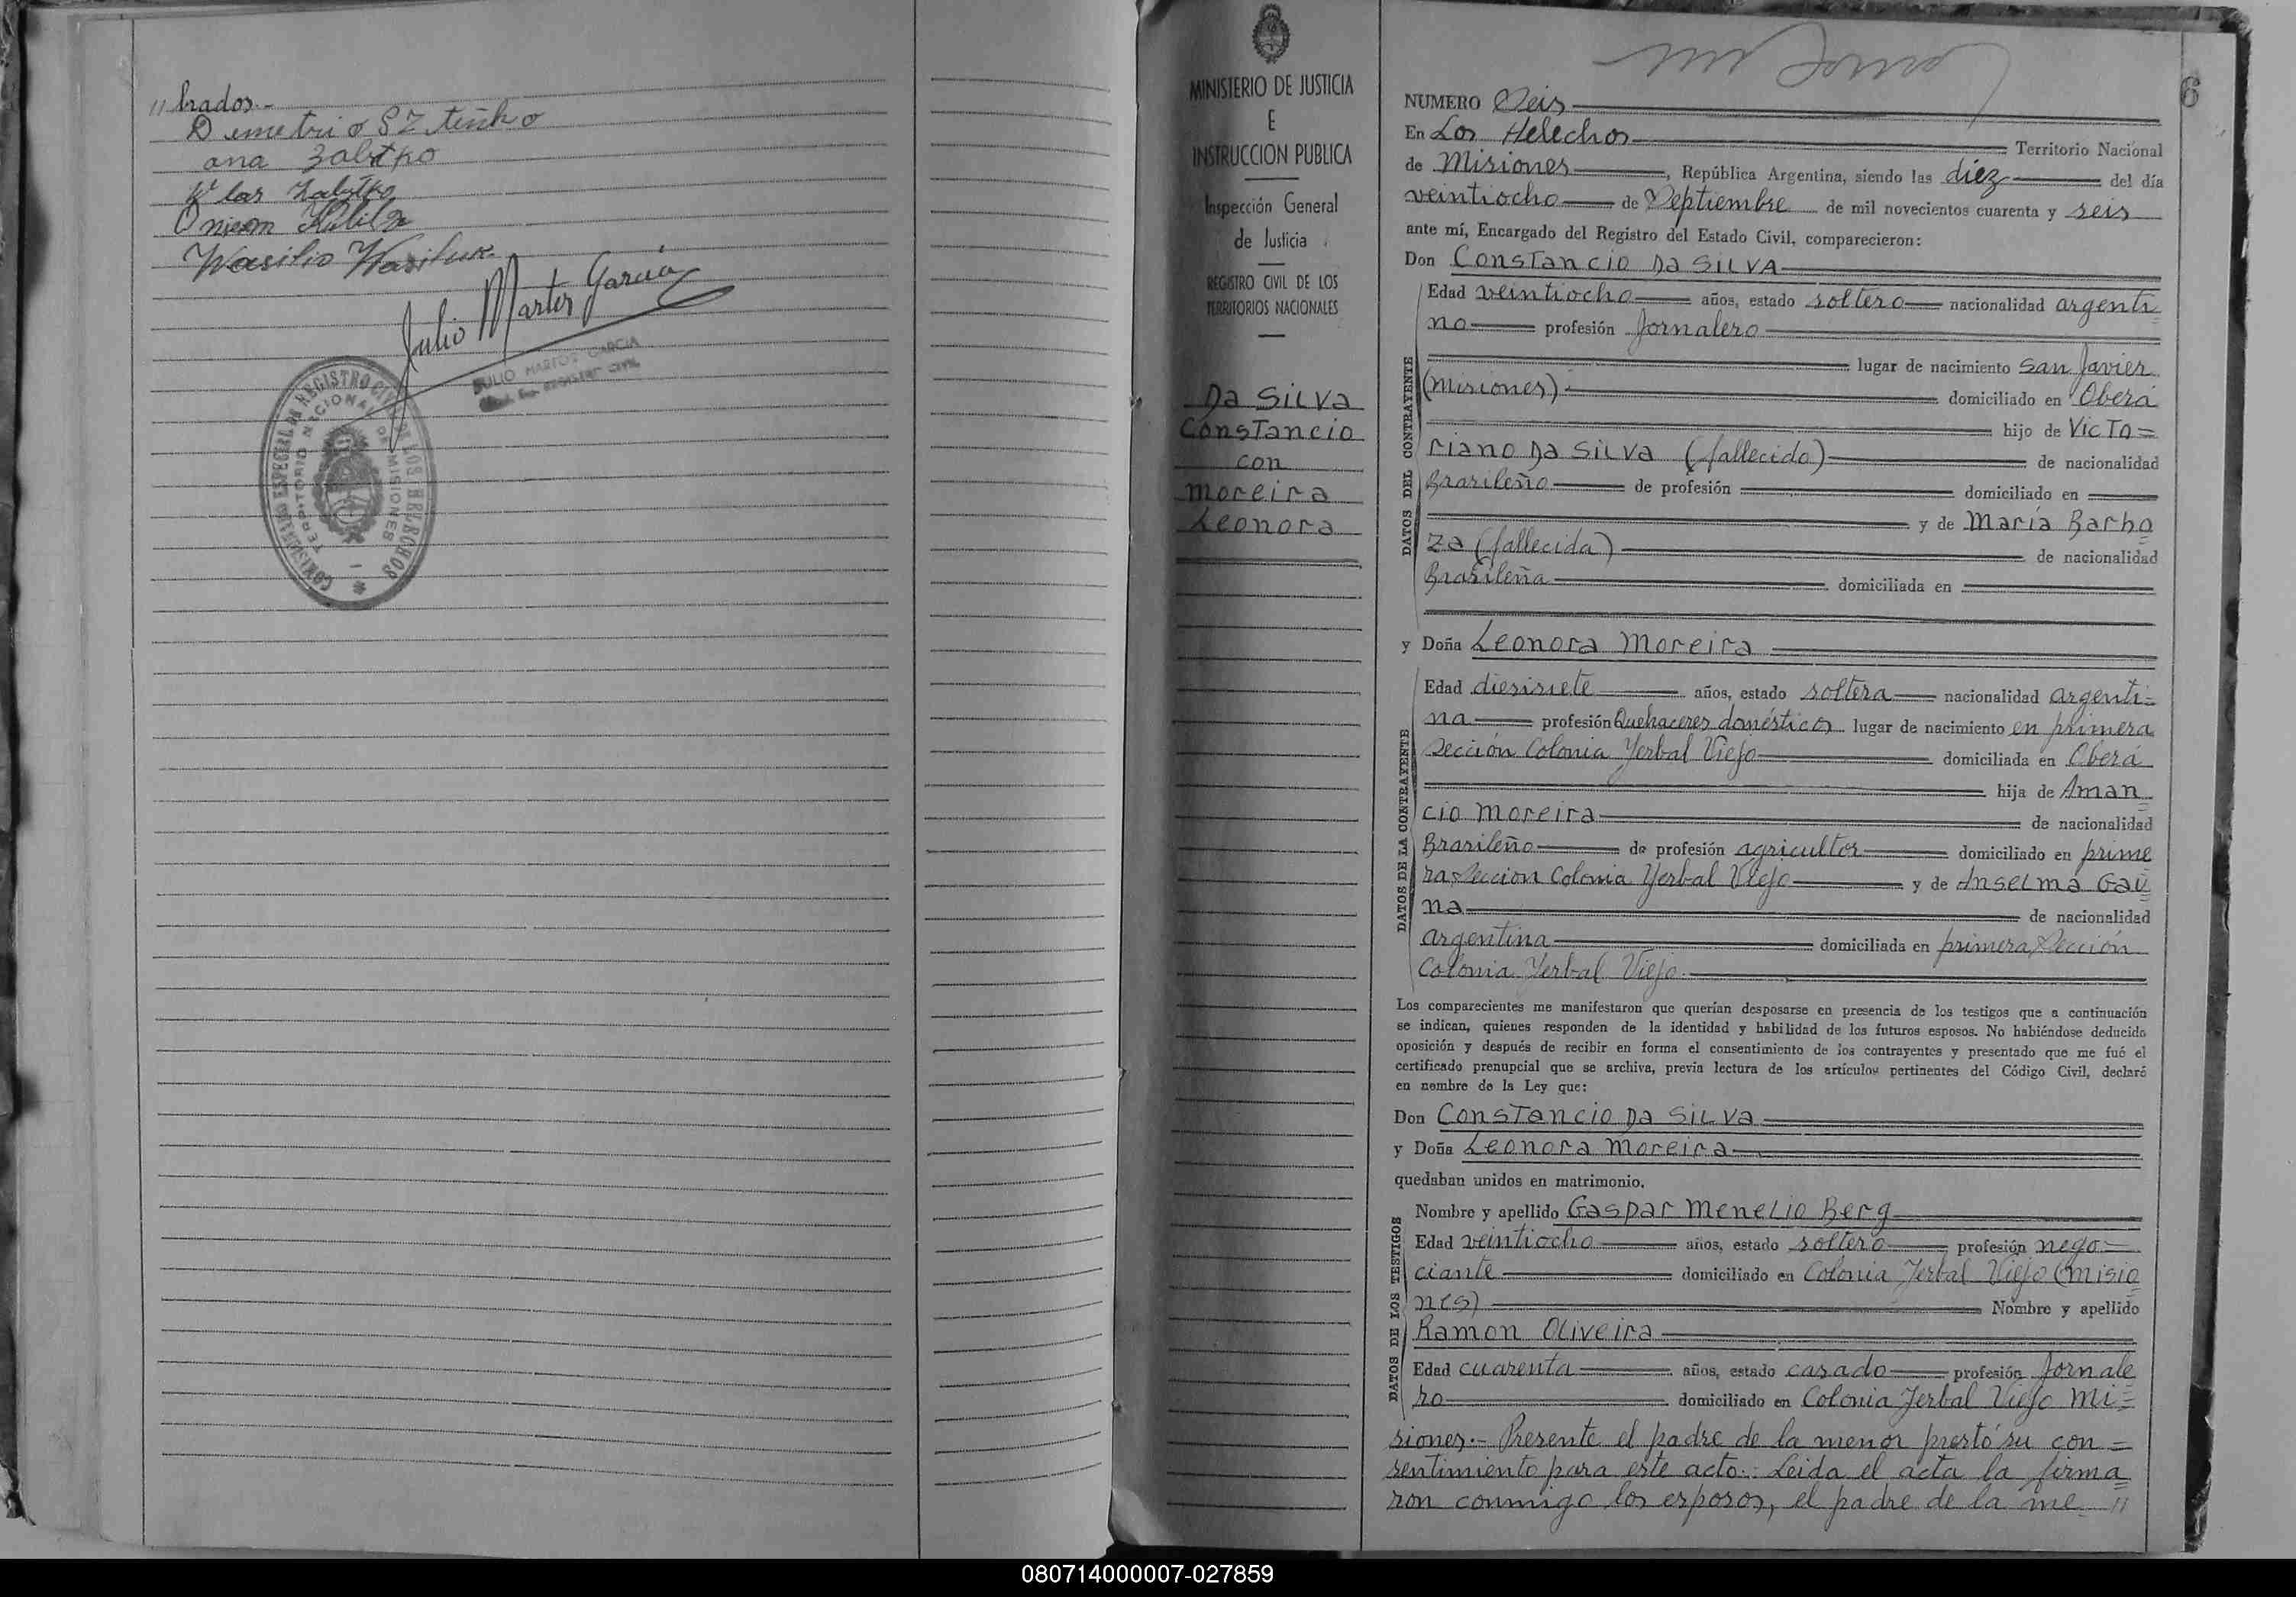 // brados.-
Demetrio Szteinko
ana
Wasilio Wasiluk
Julio Martos García
JULIO MARTOS GARCIA
REGISTRO CIVIL DE LOS HELECHOS
TERRITORIO NACIONAL DE MISIONES
MINISTERIO DE JUSTICIA
E
INSTRUCCION PUBLICA
Inspección General
de Justicia
REGISTRO CIVIL DE LOS
TERRITORIOS NACIONALES
Da Silva
Constancio
con
Moreira
Leonora
6
NUMERO Seis
En Los Helechos Territorio Nacional
de Misiones, República Argentina, siendo las diez del día
veintiocho de Septiembre de mil novecientos cuarenta y seis
ante mí, Encargado del Registro del Estado Civil, comparecieron:
Don Constancio Da Silva
DATOS DEL CONTRAYENTE
Edad veintiocho años, estado soltero nacionalidad argenti
no profesión Jornalero
lugar de nacimiento San Javier
(Misiones).- domiciliado en Oberá
hijo de Victo=
riano Da Silva (fallecido) de nacionalidad
Brasileño de profesión domiciliado en
y de María Barbo
za (fallecida) de nacionalidad
Brasileña domiciliada en
y Doña Leonora Moreira
DATOS DE LA CONTRAYENTE
Edad diesisiete años, estado soltera nacionalidad argenti=
na profesión Quehaceres domésticos lugar de nacimiento en primera
Sección Colonia Yerbal Viejo domiciliada en Oberá
hija de Aman
cio Moreira de nacionalidad
Brasileño de profesión agricultor domiciliado en prime
ra Seccion Colonia Yerbal Viejo y de Anselma Gau
na de nacionalidad
argentina domiciliada en primera Sección
Colonia Yerbal Viejo.
Los comparecientes me manifestaron que querían desposarse en presencia de los testigos que a continuación
se indican, quienes responden de la identidad y habilidad de los futuros esposos. No habiéndose deducido
oposición y después de recibir en forma el consentimiento de los contrayentes y presentado que me fué el
certificado prenupcial que se archiva, previa lectura de los artículos pertinentes del Código Civil, declaré
en nombre de la Ley que:
Don Constancio Da Silva
y Doña Leonora Moreira
quedaban unidos en matrimonio.
DATOS DE LOS TESTIGOS
Nombre y apellido Gaspar Menelio Berg
Edad veintiocho años, estado soltero profesión nego=
ciante domiciliado en Colonia Yerbal Viejo (Misio
nes) Nombre y apellido
Ramon Oliveira
Edad cuarenta años, estado casado profesión Jornale
ro domiciliado en Colonia Yerbal Viejo Mi=
siones.- Presente el padre de la menor prestó su con=
sentimiento para este acto.- Leida el acta la firma
ron conmigo los esposos, el padre de la me //
080714000007-027859